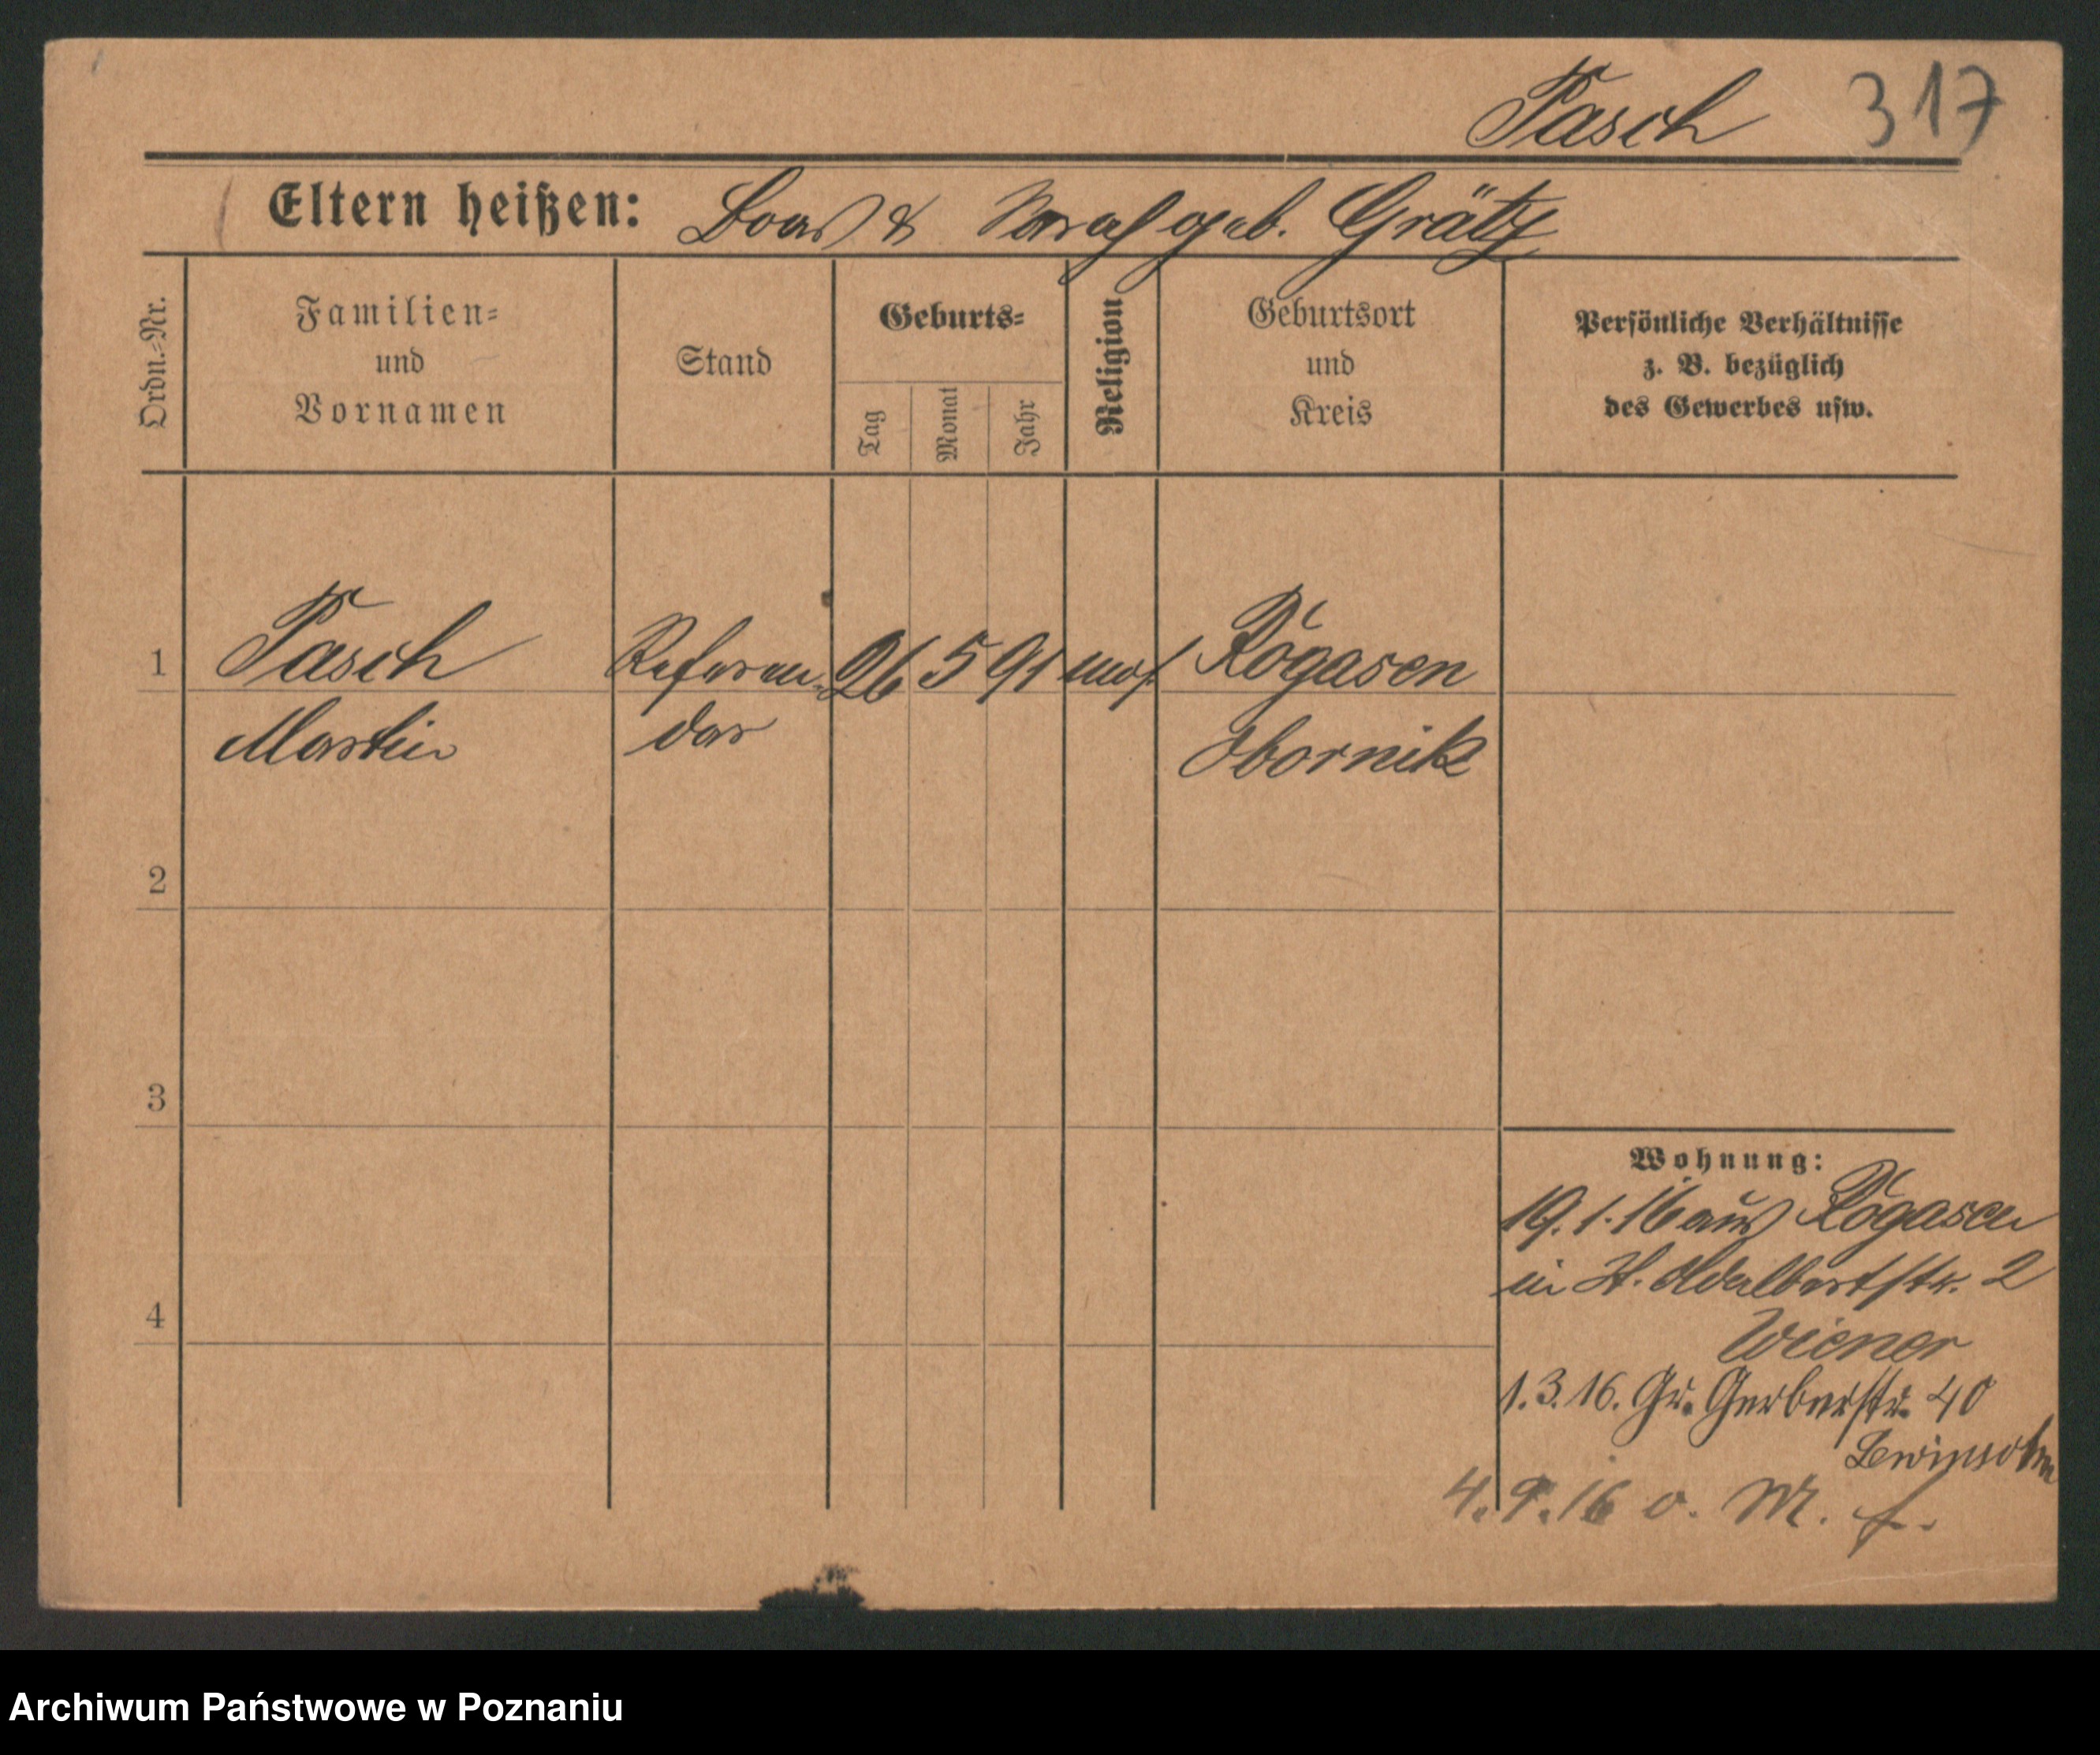 Pasch 317
Eltern heißen: Boas & Sarah geb. Grätz
Ordn.-Nr.
Familien-
und
Vornamen
Stand
Geburts-
Tag
Monat
Jahr
Religion
Geburtsort
und
Kreis
Persönliche Verhältnisse
z. B. bezüglich
des Gewerbes usw.
1 Pasch Referen- 26 5 91 mos. Rogasen
Martin dar Obornik
2
3
4
Wohnung:
19.1.16 aus Rogasen
in St. Adalbertstr. 2
Wiener
1.3.16. Gr. Gerberstr. 40
Lewinsohn
4.9.16 o. M. f.
Archiwum Państwowe w Poznaniu